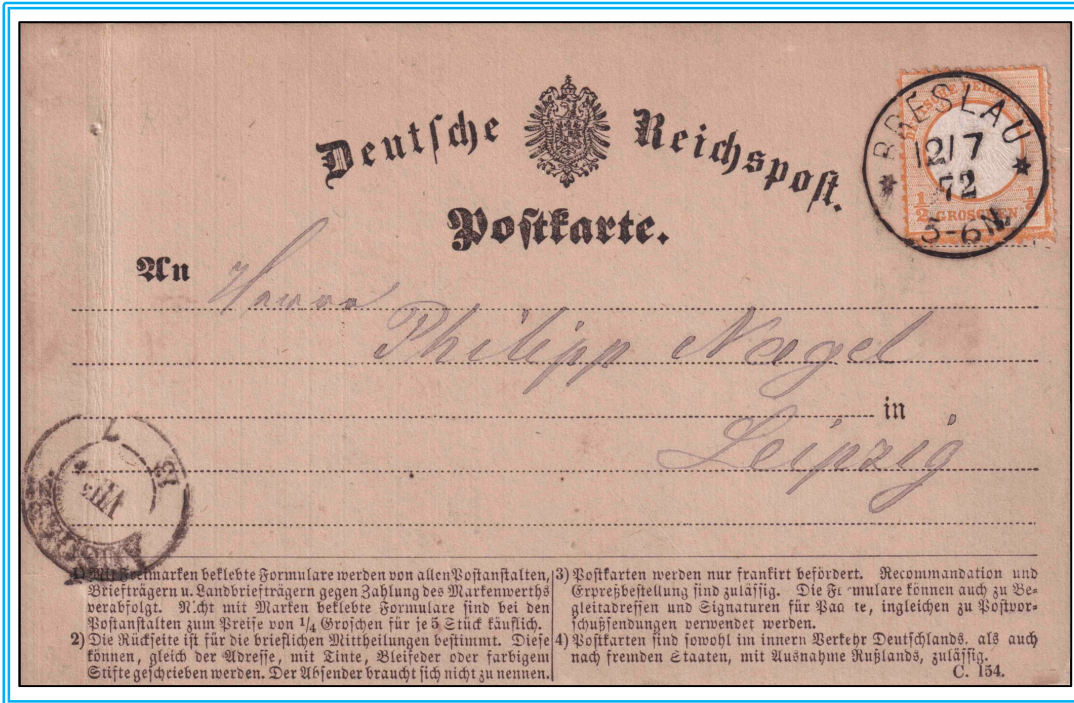 Deutsche Reichspost.
Postkarte.
BRESLAU
12/7
72
5-6N.
½ GROSCHEN ½
An Herrn
Philipp Nagel
in
Leipzig
13 7
VII
1) Mit Freimarken beklebte Formulare werden von allen Postanstalten,
Briefträgern u. Landbriefträgern gegen Zahlung des Markenwerths
verabfolgt. Nicht mit Marken beklebte Formulare sind bei den
Postanstalten zum Preise von 1/4 Groschen für je 5 Stück käuflich.
2) Die Rückseite ist für die brieflichen Mittheilungen bestimmt. Diese
können, gleich der Adresse, mit Tinte, Bleifeder oder farbigem
Stifte geschrieben werden. Der Absender braucht sich nicht zu nennen.
3) Postkarten werden nur frankirt befördert. Recommandation und
Expreßbestellung sind zulässig. Die Formulare können auch zu Be-
gleitadressen und Signaturen für Pacete, ingleichen zu Postvor-
schußsendungen verwendet werden.
4) Postkarten sind sowohl im innern Verkehr Deutschlands, als auch
nach fremden Staaten, mit Ausnahme Rußlands, zulässig.
C. 154.